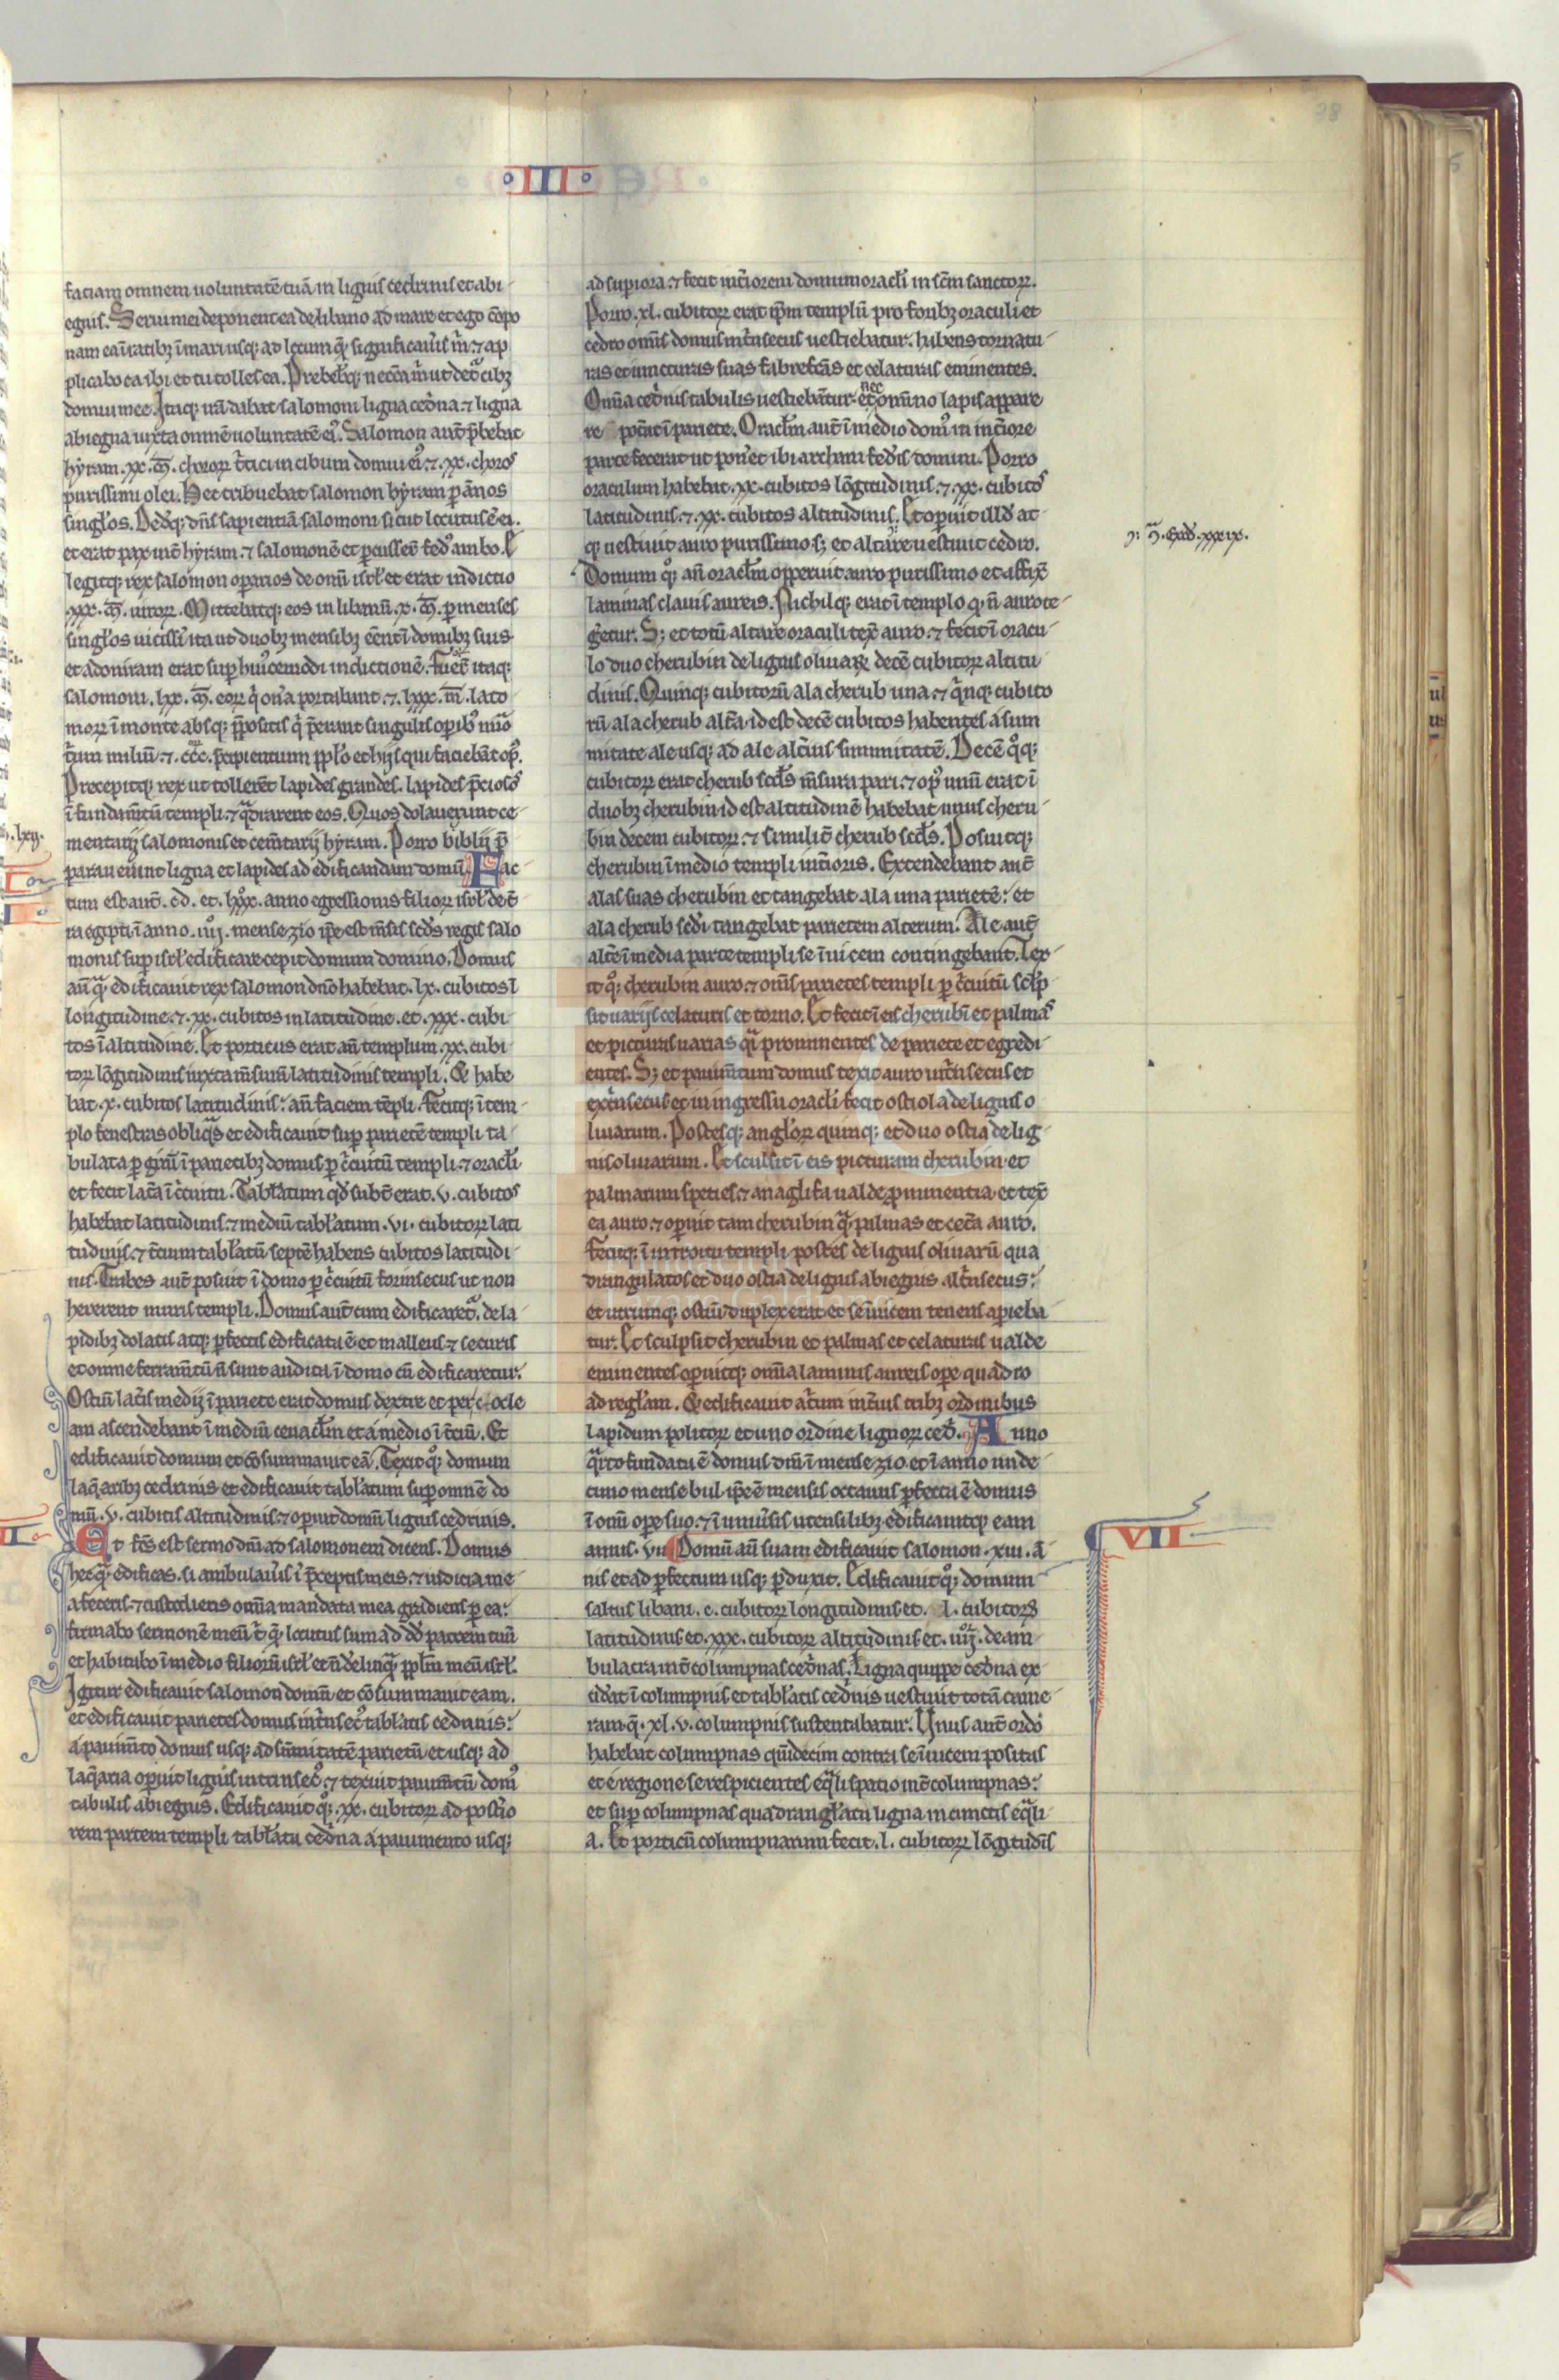 III
faciam omnem uoluntatē tuā in lignis cedrinis et abi
egnis. Serui mei deponent ea de libano ad mare et ego cōpo
nam ea ī ratibꝫ ī mari usqꝫ ad locum q̄ significauis m̓. ⁊ ap
plicabo ea ibi et tu tolles ea. Prebebisqꝫ necc̄aria m̓ ut det᷑ cibꝫ
domui mee. Itaqꝫ hyrā dabat salomoni ligna cedrina. ⁊ ligna
abiegna iuxta omnē uoluntatē ei᷒. Salomon aut̄ p̄bebat
hyram. xx. m̄. chororꝝ t̓tici in cibum domui ei᷒. ⁊ xx. choros
purissimi olei. Hec tribuebat salomon hyram ꝑ annos
singl̓os. Deditqꝫ dn̄s sapientiā salomoni sicut locutus ē ei.
et erat pax int̄ hyram. ⁊ salomonē et ꝑcusser̄t fed᷒ ambo. E
legitqꝫ rex salomon oꝑarios de omī isrl̓ et erat indictio
xxx. m̄. uirorꝝ. Mittebatqꝫ eos in libanū. x. m̄. ꝑ menses
singl̓os uicissi ita ut duobꝫ mensibꝫ eēnt ī domibꝫ suis
et adoniram erat suꝑ hui᷒cemodi indictionē. Fuer̄t itaqꝫ
salomoni. lxx. m̄. eorꝝ q̓ on̓a portabant. ⁊. lxxx. m̄. lato
morꝝ ī monte absqꝫ p̄positis q̓ p̄erant singulis oꝑibꝫ nūo
t̓um miliū. ⁊. ccc. p̄cipientium pp̄lo et hijs qui faciebāt op᷒.
Precepitqꝫ rex ut tollerēt lapides grandes. lapides p̄ciosos
ī fundamtū templi. ⁊ q̓drarent eos. Quos dolauerunt ce
mentarij salomonis et cem̄tarij hyram. Porro biblij p̄
parauerunt ligna et lapides ad edificandam domū. Fac
tum est aut̄. cd. et. lxxx. anno egressionis filiorꝝ isrl̓ de t̄
ra egipti ī anno. iiij. mense zio ip̄e est m̄sis scd̓s regis salo
monis suꝑ isrl̓ edificare cepit domum domino. Domus
aū q̄. edificauit rex salomon dn̄o habebat. lx. cubitos ī
longitudine. ⁊. xx. cubitos in latitudine. et. xxx. cubi
tos ī altitudine. Et porticus erat an̄ templum. xx. cubi
torꝝ lōgitudinis iuxta m̄suram latitudinis templi. Et habe
bat. x. cubitos latitudinis. an̄ faciem tēpli. Fecitqꝫ ī tem
plo fenestras obliq̓s et edificauit suꝑ parietē templi ta
bulata ꝑ girū ī parietibꝫ domus ꝑ c̓cuitū templi. ⁊ oracl̓i
et fecit lat̓a ī c̓cuitu. Tabl̓atum qd̓ subt̓ erat. v. cubitos
habebat latitudinis. ⁊ mediū tabl̓atum. vi. cubitorꝝ lati
tudinis. ⁊ t̓cium tabl̓atū septē habens cubitos latitudi
nis. Trabes aut̄ posuit ī domo ꝑ c̓cuitū forinsecus ut non
hererent muris templi. Domus aut̄ cum edificaret᷑. de la
pidibꝫ dolatis atqꝫ ꝑfectis edificata ē et malleus ⁊ securis
et omne ferram̄tū n̄ sunt audita ī domo cū edificaretur.
Ostiū lat̓is medij ī pariete erat domus dextre et per cocle
am ascendebant ī mediū cenacl̓m et a medio ī t̓ciū. Et
edificauit domum et cōsummauit eā. Texit q̓ꝫ domum
laq̓aribꝫ cedrinis et edificauit tabl̓atum suꝑ omnē do
mū. v. cubitis altitudinis. ⁊ oꝑuit domū lignis cedrinis.
Et fc̄s est sermo dn̄i ad salomonem dicens. Domus
hec q̄. edificas. si ambulauis ī p̄ceptis meis. ⁊ iudicia me
a feceris. ⁊ custodieris omīa mandata mea gradiens ꝑ ea.
firmabo sermonē meū t̓ q̄. locutus sum ad dd̓ patrem tuū
et habitabo ī medio filiorū isrl̓ et n̄ delinq̄. pp̄lm meū isrl̓.
Igitur edificauit salomon domū et cōsummauit eam.
et edificauit parietes domus int̓nsec᷒ tabl̓atis cedrinis.
a pauim̄to domus usqꝫ ad sūmitatē parietū et usqꝫ ad
laq̓aria oꝑuit lignis intrinsec᷒. ⁊ texuit pauim̄tū dom᷒
tabulis abiegnis. Edificauit q̓ꝫ. xx. cubitorꝝ ad post̓io
rem partem templi tabl̓ata cedrina a pauimento usqꝫ
ad suꝑiora. ⁊ fecit int̓iorem domum oracl̓i in scm̄ sanctorꝝ.
Porro. xl. cubitorꝝ erat ip̄m templū pro foribꝫ oraculi et
cedro omīs domus int̓nsecus uestiebatur. habens tornatu
ras et iuncturas suas fabrefc̄as et celaturas eminentes.
Omīa cedrinis tabulis uestiebāntur et nec omnino lapis appare
re pot̓at ī pariete. Oracl̓m aut̄ ī medio dom᷒ in int̓iore
parte fecerat ut pon̓et ibi archam fed̓is domini. Porro
oraculum habebat. xx. cubitos lōgitudinis. ⁊. xx. cubitos
latitudinis. ⁊. xx. cubitos altitudinis. Et oꝑuit illd̓ at
qꝫ uestiuit auro purissimo sꝫ et altare uestiuit cedro.
Domum q̓ꝫ an̄ oracl̓m opꝑuit auro purissimo et affix̄
laminas clauis aureis. Nichilqꝫ erat ī templo q̄ n̄ auro te
getur. Sꝫ et totū altare oraculi tex̄ auro. ⁊ fecit ī oracu
lo duo cherubin de lignis oliuarꝝ decē cubitorꝝ altitu
dinis. Quinqꝫ cubitorū ala cherub una. ⁊ q̓nqꝫ cubito
rū ala cherub alt̓a. id est decē cubitos habentes a sum
mitate ale usqꝫ ad ale alt̓ius summitatē. Decē q̓qꝫ
cubitorꝝ erat cherub scd̓s m̄sura pari. ⁊ op᷒ unū erat ī
duobꝫ cherubin id est altitudinē habebat unus cheru
bin decem cubitorꝝ. ⁊ similit̄ cherub scd̓s. Posuitqꝫ
cherubin ī medio templi int̓ioris. Extendebant aut̄
alas suas cherubin et tangebat ala una parietē. et
ala cherub scd̓i tangebat parietem alterum. Ale aut̄
alt̄e ī media parte templi se ī uicem contingebant. Tex
it q̓ꝫ cherubin auro. ⁊ omīs parietes templi ꝑ c̓cuitū sclp̄
sit uarijs celaturis et torno. Et fecit ī eis cherubī et palmas
et picturas uarias q̓i prominentes de pariete et egredi
entes. Sꝫ et pauim̄tum domus texit auro int̓nsecus et
ext̓nsecus et in ingressu oracl̓i fecit ostiola de lignis o
liuarum. Postesqꝫ angl̓orꝝ quinqꝫ et duo ostia de lig
nis oliuarum. Et sculsit ī eis picturam cherubin et
palmarum species. ⁊ anaglifa ualde ꝓminentia et tex̄
ea auro. ⁊ oꝑuit tam cherubin q̄. palmas et cet̓a auro.
Fecitqꝫ ī introitu templi postes de lignis oliuarū qua
drangulatos et duo ostia de lignis abiegnis alt̓nsecus.
et utrumqꝫ ostiū duplex erat et se ī uicem tenens aꝑieba
tur. Et sculpsit cherubin et palmas et celaturas ualde
eminentes oꝑuitqꝫ omīa laminis aureis oꝑe quadro
ad regl̓am. Et edificauit at̓um int̓ius tribꝫ ordinibus
lapidum politorꝝ et uno ordine lignorꝝ ced̓. Anno
q̓rto fundata ē domus dn̄i ī mense zio. et ī anno unde
cimo mense bul ip̄e ē mensis octauus ꝑfecta ē domus
ī omī oꝑe suo. ⁊ ī uniu̓sis utensilibꝫ edificauitqꝫ eam
annis. vii. Domū aū suam edificauit salomon. xiii. ā
nis et ad ꝑfectum usqꝫ ꝑduxit. Edificauit q̓ꝫ domum
saltus libani. c. cubitorꝝ longitudinis et. l. cubitorꝝ
latitudinis et. xxx. cubitorꝝ altitudinis et. iiij. deam
bulacra int̄ columpnas ced̓nas. Ligna quippe ced̓na ex
cid̓at ī columpnis et tabl̓atis ced̓nis uestiuit totā came
ram q̄. xl. v. columpnis sustentabatur. Unus aut̄ ordo
habebat columpnas quīdecim contra se ī uicem positas
et e regione se respicientes eq̓li spatio int̄ columpnas.
et suꝑ columpnas quadrangl̓ata ligna in cunctis eq̓li
a. Et porticū columpnarum fecit. l. cubitorꝝ lōgitudīs
VII